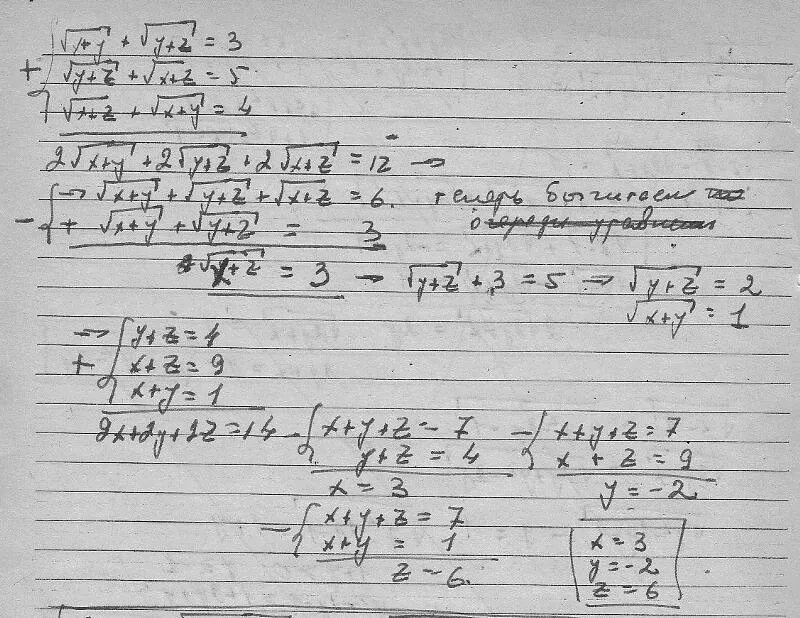 √x+y + √y+z = 3
+ √y+z + √x+z = 5
√x+z + √x+y = 4
2√x+y + 2√y+z + 2√x+z = 12 →
→ √x+y + √y+z + √x+z = 6. теперь вычитаем
- + √x+y + √y+z = 3 очереди уравнен
√x+z = 3 → √y+z + 3 = 5 → √y+z = 2
√x+y = 1
→ y+z = 4
+ x+z = 9
x+y = 1
2x+2y+2z = 14
- x+y+z = 7
y+z = 4
x = 3
- x+y+z = 7
x + z = 9
y = -2
- x+y+z = 7
x+y = 1
z = 6.
x = 3
y = -2
z = 6